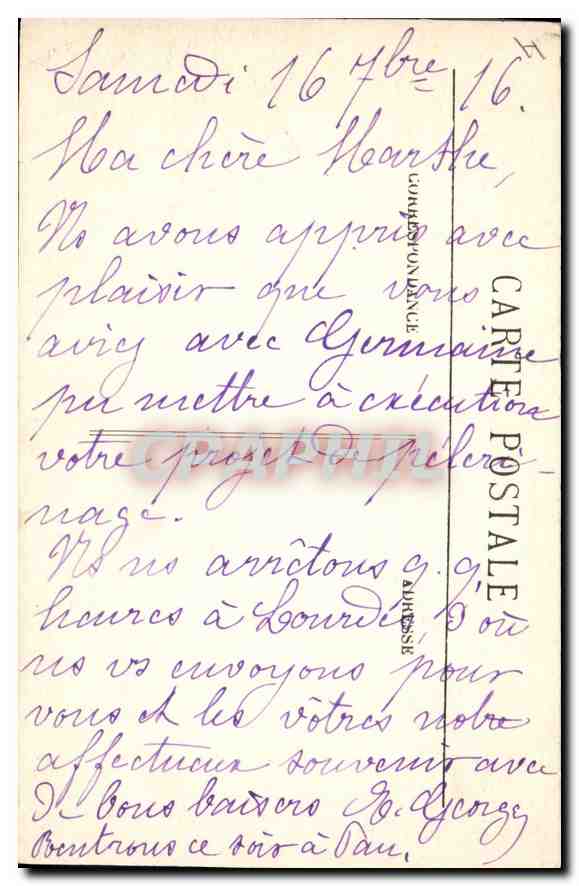 Samedi 16 7bre 16.
Ma chère Marthe,
Ns avons appris avec
plaisir que vous
aviez avec Germaine
pu mettre à exécution
votre projet de péleri-
nage.
Ns ns arrêtons q. q.
heures à Lourdes d'où
ns vs envoyons pour
vous et les vôtres notre
affectueux souvenir avec
de bons baisers E. George
Rentrons ce soir à Pau.
CARTE POSTALE
CORRESPONDANCE
ADRESSE
CPAPHIL